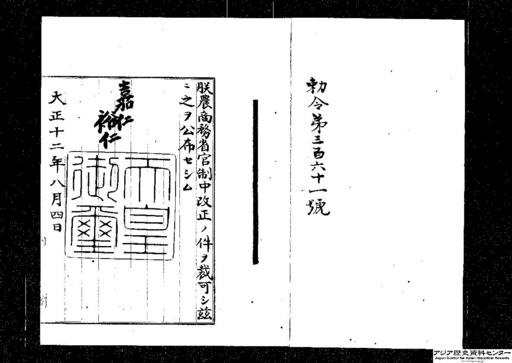 勅令第三百六十一號
朕農商務省官制中改正ノ件ヲ裁可シ茲
ニ之ヲ公布セシム
嘉仁
裕仁
天皇
御璽
大正十二年八月四日
アジア歴史資料センター
Japan Center for Asian Historical Records